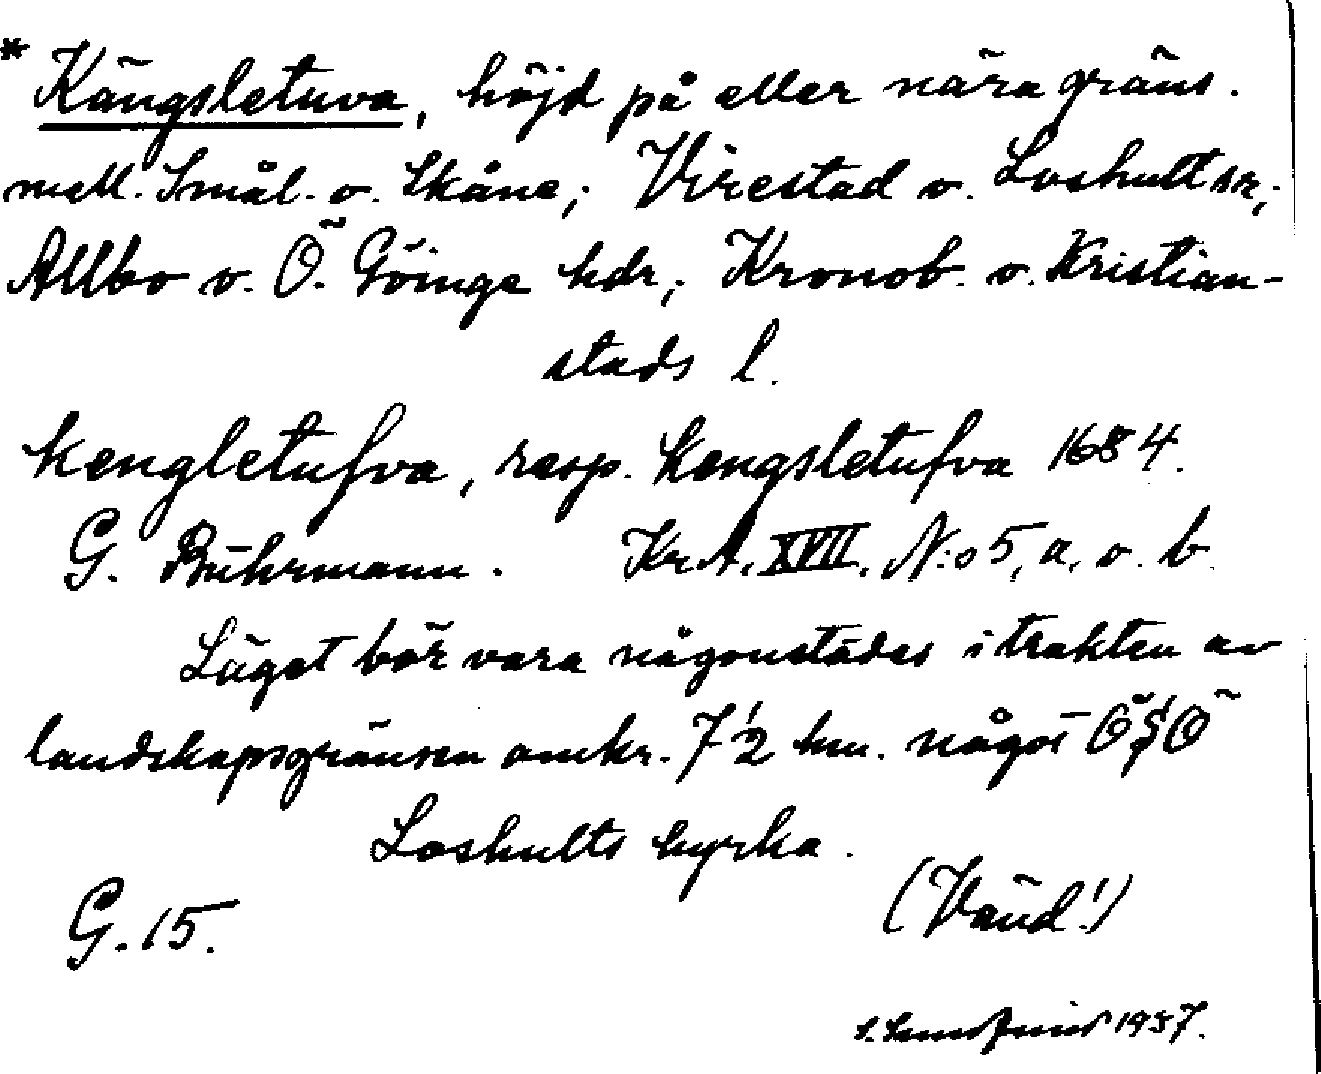 * Kängsletuva, höjd på eller nära gräns.
mell. Smål. o. Skåne; Virestad o. Loshult sn;
Allbo o. Ö. Göinge hdr; Kronob. o. Kristian-
stads l.
kengletufva, resp. kengsletufva 1684.
G. Buhrmann. KrA. XVII. N:o 5, a, o. b.
Läget bör vara någonstädes i trakten av
landskapsgränsen omkr. 7 1/2 km. något ÖSÖ
Loshults kyrka.
G. 15. (Vänd!)
1937.